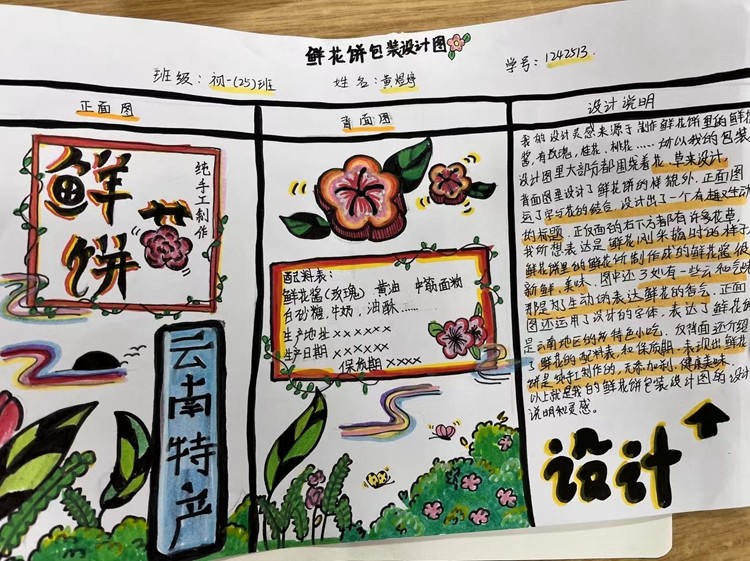 鲜花饼包装设计图
班级：初一(25)班 姓名：黄煜婷 学号：1242513.
正面图
鲜花饼
纯手工制作
云南特产
背面图
配料表：
鲜花酱(玫瑰) 黄油 中筋面粉
白砂糖，牛奶，油酥……
生产地址××××××
生产日期××××××
保质期××××
设计说明
我的设计灵感来源于制作鲜花饼里的鲜花
酱，有玫瑰，桂花，桃花……所以我的包装
设计图里大部分都围绕着花、草来设计，
背面图里设计了鲜花饼的样貌外，正面图
运了字与花的结合，设计出了一个有趣又生动
的标题，正反面的右下方都有许多花草，
我所想表达是鲜花刚采摘时的样子
鲜花饼里的鲜花所制作成的鲜花酱很
新鲜、美味、图中还了如有一些云和气味
都是为了生动的表达鲜花的香气，正面
图还运用了设计的字体，表达了鲜花饼
是云南地区的特色小吃，
了鲜花的配料表和保质期，表现出鲜花
饼是纯手工制作的，无添加剂，健康美味
以上就是我的鲜花饼包装设计图的设计
说明和灵感。
设计